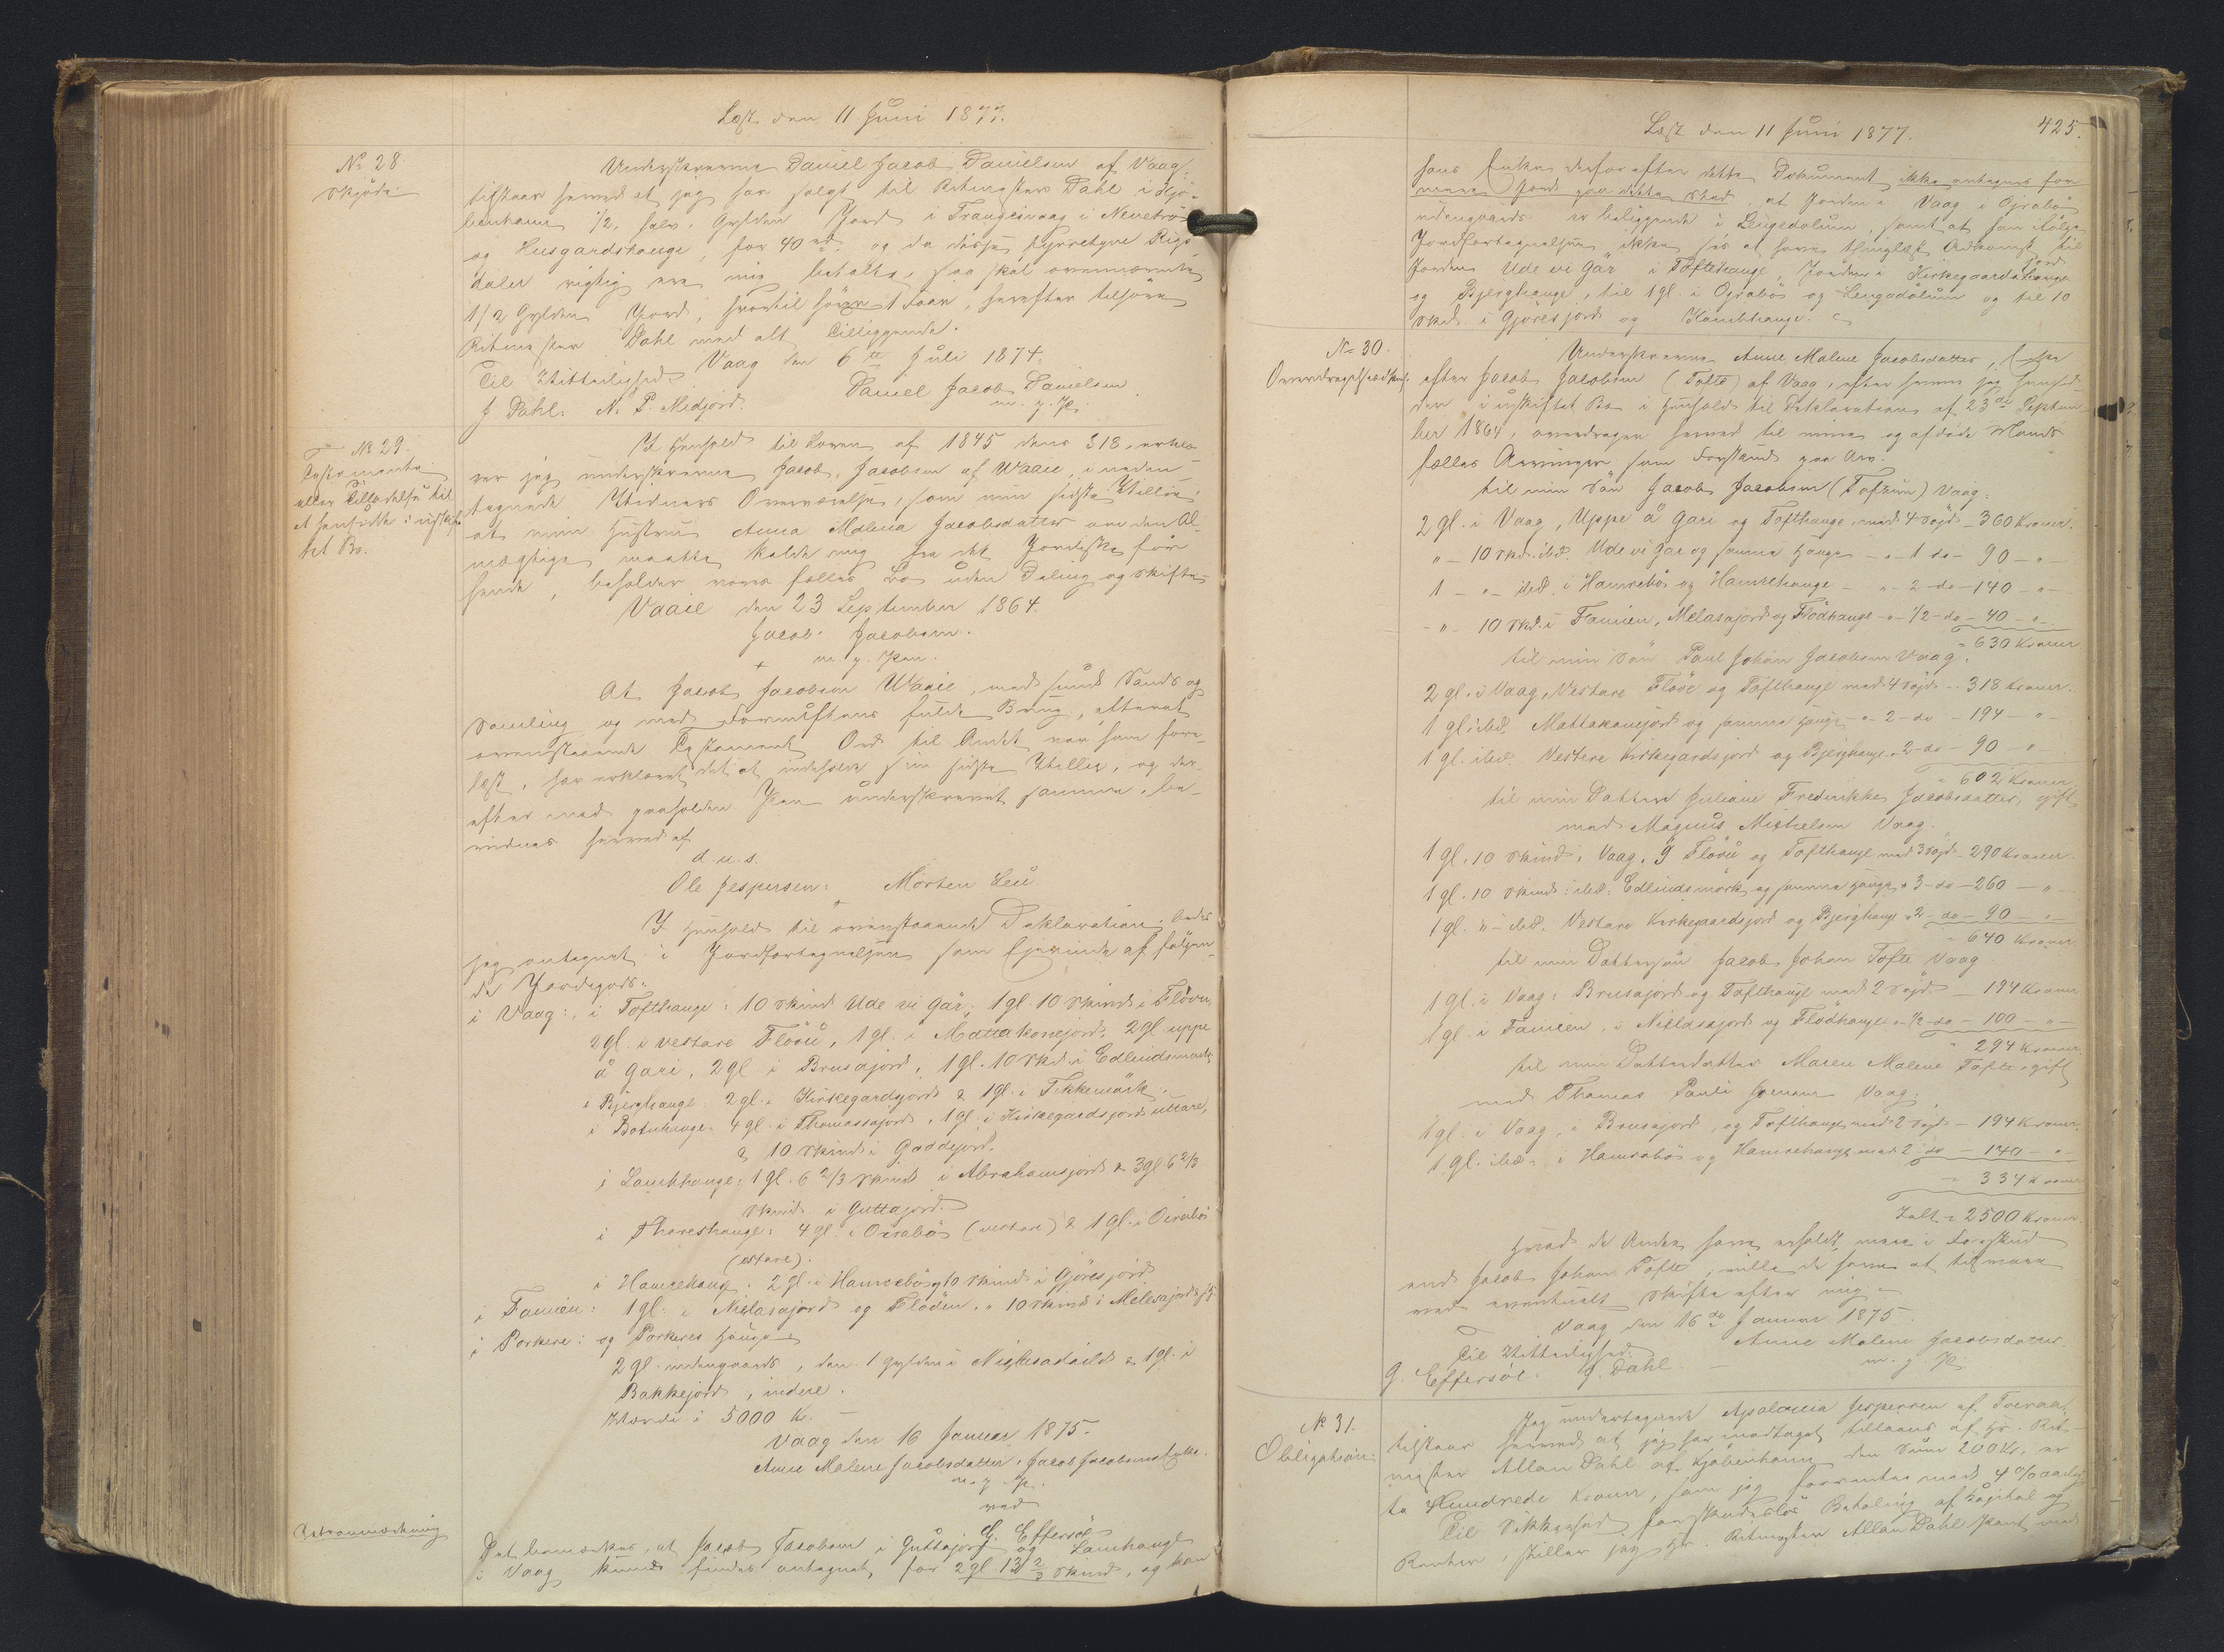 Læst den 11 Juni 1877.
No 28
Skjøde.
Underskrevne Daniel Jacob Danielsen af Vaag:
tilstaar herved at jeg har solgt til Ritmester Dahl i Kjö-
benhavn 1/2, halv, Gylden Jord i Trangisvaag i Nevebö
og Husgardshauge, for 40 rd. og da disse fyrretyve Rigs
daler rigtig ere mig betalte, saa skal ovennævnte
1/2 Gylden Jord, hvortil hører 1 Faar, herefter tilhøre
Ritmester Dahl med alt Tilliggende.
Vaag den 6te Juli 1874.
Til Vitterlighed
Daniel Jacob Danielsen
J Dahl. N. P. Medjord.
m. p. P.
No 29.
Testamente
eller Tilladelse til
at hensidde i uskif-
tet Bo.
I Henhold til Loven af 1845 dens § 18, erklæ-
rer jeg underskrevne Jacob Jacobsen af Waaie, i neden
tegnede Vidners Overværelse, som min sidste Villie:
at min Hustru Anna Malena Jacobsdatter om den Al-
mægtige maatte kalde mig fra det Jordiske før
hende, beholder vores fælles Bo uden Deling og Skifte
Vaaie den 23 September 1864.
Jacob Jacobsen.
+ m. g. Pen.
At Jacob Jacobsen Waaie, med sund Sands og
Samling og med Fornuftens fulde Brug, efterat
ovenstaaende Testament Ord til Andet var ham fore-
læst, har erklæret det at indeholde sin sidste Villie, og der-
efter med paaholden Pen underskrevet samme, be-
vidnes herved af
d. u. s.
Ole Jespersen. Morten Leu
+
I Henhold til ovenstaaende Deklaration bedes
jeg antegnet i Jordfortegnelsen som Ejerinde af følgen-
de Jordegods:
i Vaag:, i Tofthauge: 10 Skind Ude vi Gär, 1gl. 10 Skind i Flövu,
2gl. i vestare Flövu, 1gl. i Mattakonejord, 2gl. uppe
å gari, 2gl. i Brusajord, 1gl. 10 Skd. i Edlindsmørk
i Bjerghauge. 2gl. i Kirkegardsjord & 1gl. i Tikkemørk.
i Botnhauge. 4gl. i Thomassajord, 1gl. i Kirkegardsjord uttare,
& 10 Skind i Goddejord.
i Lambhauge: 1gl. 6 2/3 Skind i Abrahamsjord & 3gl 6 2/3
Skind i Guttajord.
i Thoreshauge: 4gl. i Oirabö (vestare) & 1gl. i Oirabö
(estare).
i Hamrehauge: 2gl. i Hamrebö & 10 Skind i Gjöresjord
i Famien: 1gl. i Nielasajord og Flöden. " 10 Skind i Melasajord
i Porkere: og Porkeres Hauge
2gl. indengaards, den 1 Gylden i Nielsadeild & 1gl. i
Bakkejord, indere.
Værdi i 5000 Kr.
Vaag den 16 Januar 1875.
Anne Malene Jacobsdatter, Jacob Jacobsens Enke.
m. p. P.
ved
G. Effersøe
Retsanmærkning
Det bemærkes, at Jacob Jacobsen i Guttajord og Lamhauge
i Vaag kuns findes antegnet for 2gl. 13 2/3 Skind, og kan
Læst den 11 Juni 1877.
425.
hans Enke derfor efter dette Dokument ikke antegnes for
mere Jord paa dette Sted, at Jorden i Vaag i Ograbö
udengaards er beliggende i Lengedolum, samt at han ifølge
Jordfortegnelsen ikke ses at have thinglæst Adkomst til
Jorden Ude vi Gär i Tofthauge, Jorden i Kirkegaardsjord
og Bjerghauge, til 1gl. i Ograbös og Lengadölum og til 10
Skd. i Gjöresjord og Hambhauge.
No 30.
Overdragelsesdokt.
Underskrevne Anne Malene Jacobsdatter, Enke
efter Jacob Jacobsen (Tofte) af Vaag, efter hvem jeg hensid-
der i uskiftet Bo i Henhold til Deklaration af 23de Septem
ber 1864, overdrager herved til mine og afdøde Mands
fælles Arvinger som Forskud paa Arv.
til min Søn Jacob Jacobsen (Toftum) Vaag:
2 gl. i Vaag, Uppe å Gari og Tofthauge, med 4 Søjd - 360 Kroner.
" - 10 Skd. ibid. Ude vi Gar og samme Hauge - " - 1 do - 90 - " -
1 - " - ibid. i Hamrebö og Hamrehauge - " - 2 - do - 140 - " -
- " - 10 Skd. i Famien, Melasajord og Flödhauge - " - 1/2 - do - 40 - " -
= 630 Kroner
til min Søn Poul Johan Jacobsen Vaag.
2 gl. i Vaag, Vestare Flövu og Tofthauge med 4 Søjd - 318 Kroner.
1 gl. ibid. Mattakonejord og samme Hauge - " - 2 - do - 194 - " -
1 gl. ibid. Vestere Kirkegardsjord og Bjerghauge " 2 - do - 90 - " -
= 602 Kroner
til min Datter Juliane Frederikke Jacobsdatter, gift
med Magnus Michelsen Vaag.
1 gl. 10 Skind i Vaag, i Flövu og Tofthauge med 3 Søjd - 290 Kroner.
1 gl. 10 Skind ibid. Edlindsmörk og samme Hauge " 3 - do - 260 - " -
1 gl. " - ibid. Vestare Kirkegaardsjord og Bjerghauge " 2 - do - 90 - " -
= 640 Kroner
til min Dattersøn Jacob Johan Tofte Vaag
1 gl. i Vaag, Brusajord og Tofthauge med 2 Søjd - 194 Kroner
1 gl. i Famien, i Nielasajord og Flödhauge " 1/2 - do - 100 - " -
= 294 Kroner
til min Datterdatter Maren Malene Tofte, gift
med Thomas Pauli Joensen Vaag.
1 gl. i Vaag, i Brusajord, og Tofthauge med 2 Søjd - 194 Kroner.
1 gl. ibid. i Hamrabö og Hamrehauge med 2 do - 140 - " -
= 334 Kroner
Ialt = 2500 Kroner.
Hvad de Andre have erholdt mere i Forskud
end Jacob Johan Tofte, ville de have at tilsvare
ved eventuelt Skifte efter mig.
Vaag den 16de Januar 1875.
Til Vitterlighed:
Anne Malene Jacobsdatter
G. Effersöe. J. Dahl
m. p. P.
No 31.
Obligation.
Jeg undertegnede Apolonia Jespersen af Tveraa,
tilstaar herved at jeg har modtaget tillaans af Hr. Rit-
mester Allan Dahl af Kjöbenhavn den Sum 200 Kr. er
to Hundrede Kroner, som jeg forrenter med 4 % aarlig
Til Sikkerhed for skadeslös Betaling af Kapital og
Renter, stiller jeg Hr. Ritmester Allan Dahl Pant med